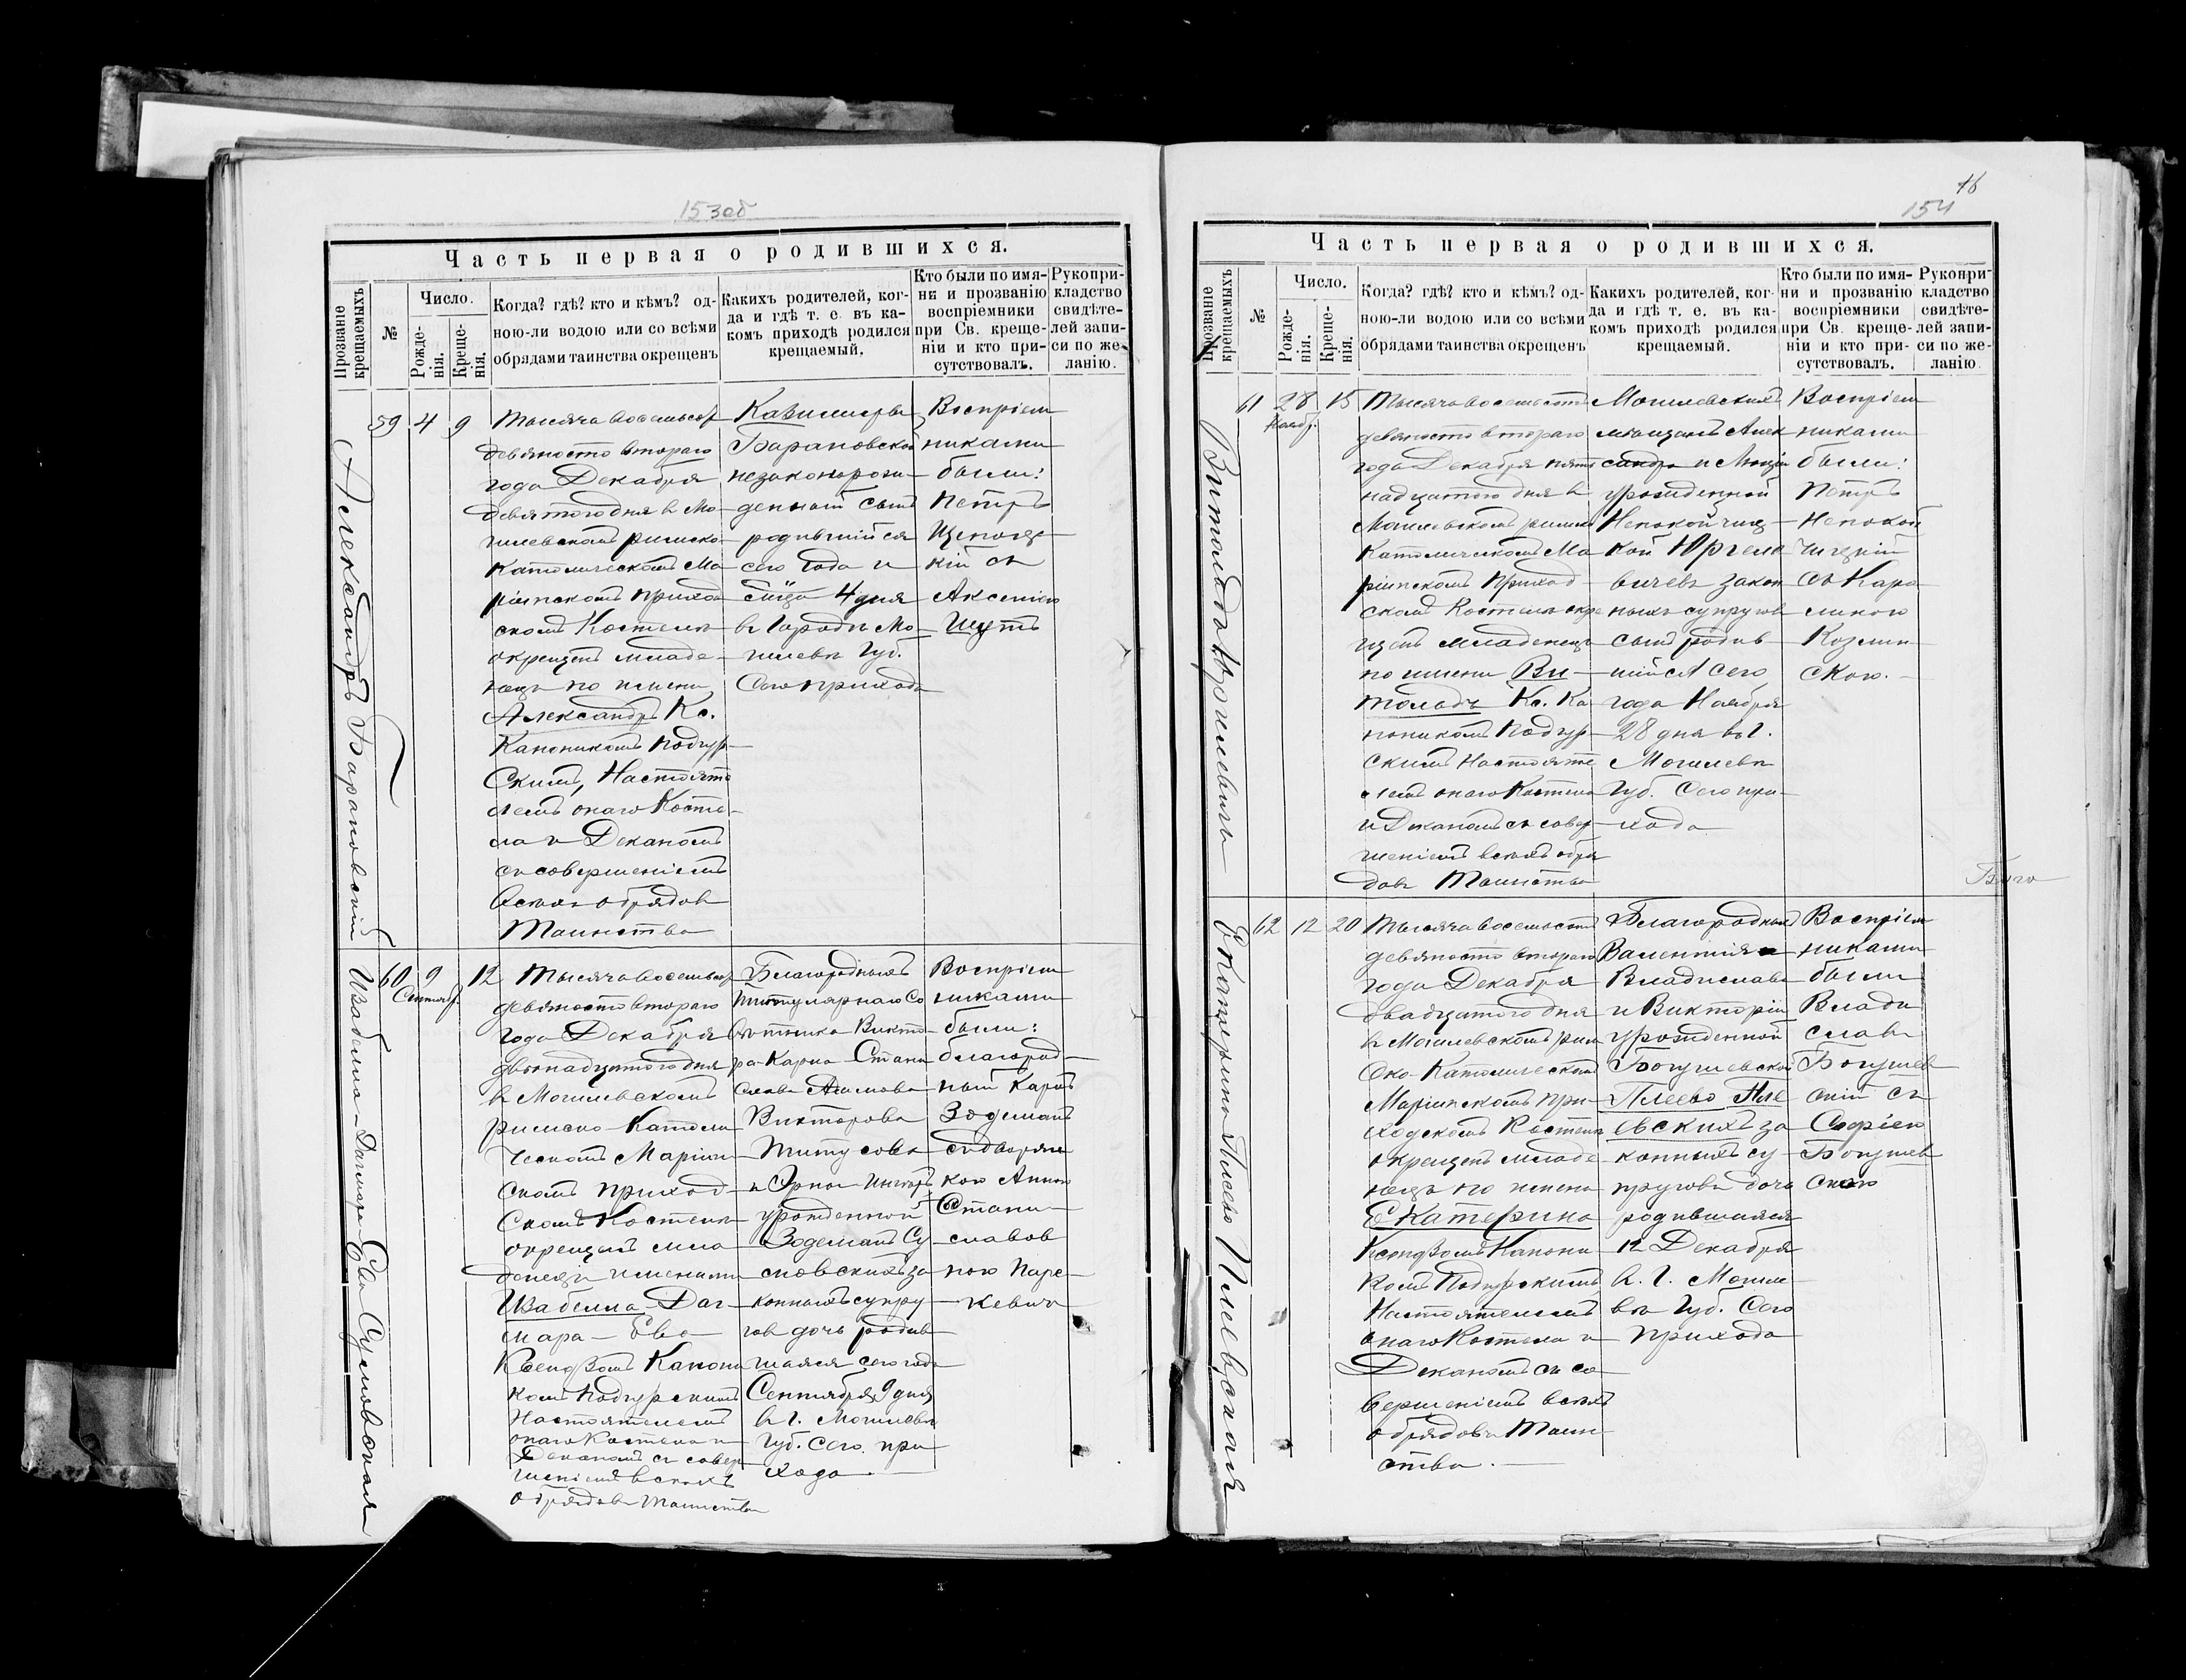 153об
Часть первая о родившихся.
Прозваніе крещаемыхъ
№
Число.
Рожде-
нія.
Креще-
нія.
Когда? гдѣ? кто и кѣмъ? од-
ною-ли водою или со всѣми
обрядами таинства окрещенъ
Какихъ родителей, ког-
да и гдѣ т. е. въ ка-
комъ приходѣ родился
крещаемый.
Кто были по имя-
ни и прозванію
воспріемники
при Св. креще-
ніи и кто при-
сутствовалъ.
Рукопри-
кладство
свидѣте-
лей запи-
си по же-
ланію.
Александръ Барановскій
59 4 9
Тысяча восемьсот
девяносто втораго
года Декабря
девятого дня в Мо-
гилевскомъ римско-
Католическомъ Ма
ріинскомъ приход
скомъ Костелѣ
окрещенъ младе-
нецъ по имени
Александръ Кс.
Каноникомъ Подгур-
скимъ, Настояте
лемъ онаго Косте-
ла и Деканомъ
съ совершеніемъ
всѣхъ обрядов
Таинства
Казимиры
Барановской
незаконорож-
денный сынъ
родившійся
сего года и
4 дня
в Городѣ Мо-
гилевѣ Губ.
Сего прихода
Воспріем
никами
были:
Петръ
кій съ
Аксенією
Изабелла-Дагмара-Ева Сумовская
60 9 12
Сентяб.
Тысяча восемьсот
девяносто втораго
года Декабря
двѣнадцатого дня
в Могилевскомъ
римско-Католи
ческомъ Маріин
скомъ приход-
скомъ Костелѣ
окрещенъ мла
денецъ именами
Изабелла-Даг-
мара-Ева
Ксендзомъ Канони
комъ Подгурскимъ
Настоятелемъ
онаго Костела и
Деканомъ съ совер
шеніемъ всѣхъ
обрядовъ Таинства
Благородныхъ
Титулярнаго Со
вѣтника Викто
ра-Карла-Стани
слава
Викторова
Титусова
урожденной
Зодеманъ Су
мовскихъ за
конныхъ супру
гов дочь родив
шаяся сего года
Сентября 9 дня
в г. Могилевѣ
Губ. Сего при
хода.
Воспріем
никами
были:
благород-
ный Карлъ
Зодеманъ
съ дворян
кою Анною
Стани-
славов
ною
16
154
Часть первая о родившихся.
Прозваніе крещаемыхъ
№
Число.
Рожде-
нія.
Креще-
нія.
Когда? гдѣ? кто и кѣмъ? од-
ною-ли водою или со всѣми
обрядами таинства окрещенъ
Какихъ родителей, ког-
да и гдѣ т. е. въ ка-
комъ приходѣ родился
крещаемый.
Кто были по имя-
ни и прозванію
воспріемники
при Св. креще-
ніи и кто при-
сутствовалъ.
Рукопри-
кладство
свидѣте-
лей запи-
си по же-
ланію
Витольдъ Юргилевичъ
61 28 15
Ноябр.
Тысяча восемьсот
девяносто втораго
года Декабря пят
надцатого дня в
Могилевскомъ римско
Католическомъ Ма
ріинскомъ Приход
скомъ Костелѣ окре
щенъ младенецъ
по имени Ви-
тольдъ Кс. Ка
ноникомъ Подгур-
скимъ Настояте
лемъ онаго Костела
и Деканомъ съ совер-
шеніемъ всѣхъ обря
довъ Таинства
Могилевскихъ
мѣщанъ Алек
сандра и Люціи
урожденной
Непокойчиц-
кой Юргеле
вичевъ закон
ныхъ супругов
сынъ родив
шійся сего
года Ноября
28 дня въ г.
Могилевѣ
Губ. Сего при-
хода
Воспріем
никами
были:
Петръ
Непокой
чицкій
съ Каро
линою
Козлин
скою.
Благо
Екатерина Плево Плевская
62 12 20
Тысяча восемьсот
девяносто втораго
года Декабря
двадцатого дня
в Могилевскомъ рим
ско-Католическомъ
Маріинскомъ При-
ходскомъ Костелѣ
окрещенъ младе
нецъ по имени
Екатерина
Ксендзомъ Канони
комъ Подгурскимъ
Настоятелемъ
онаго Костела и
Деканомъ съ со
вершеніемъ всѣхъ
обрядовъ Таин-
ства.
Благородныхъ
Валентія
Владислава
и Викторіи
урожденной
Богушевской
Плево Пле
вскихъ за
конныхъ су
пруговъ дочь
родившаяся
12 Декабря
в. г. Могиле
вѣ Губ. Сего
прихода
Воспріем
никами
были
Влади
славъ
Богушев
скій съ
Софіею
Богушев
скою